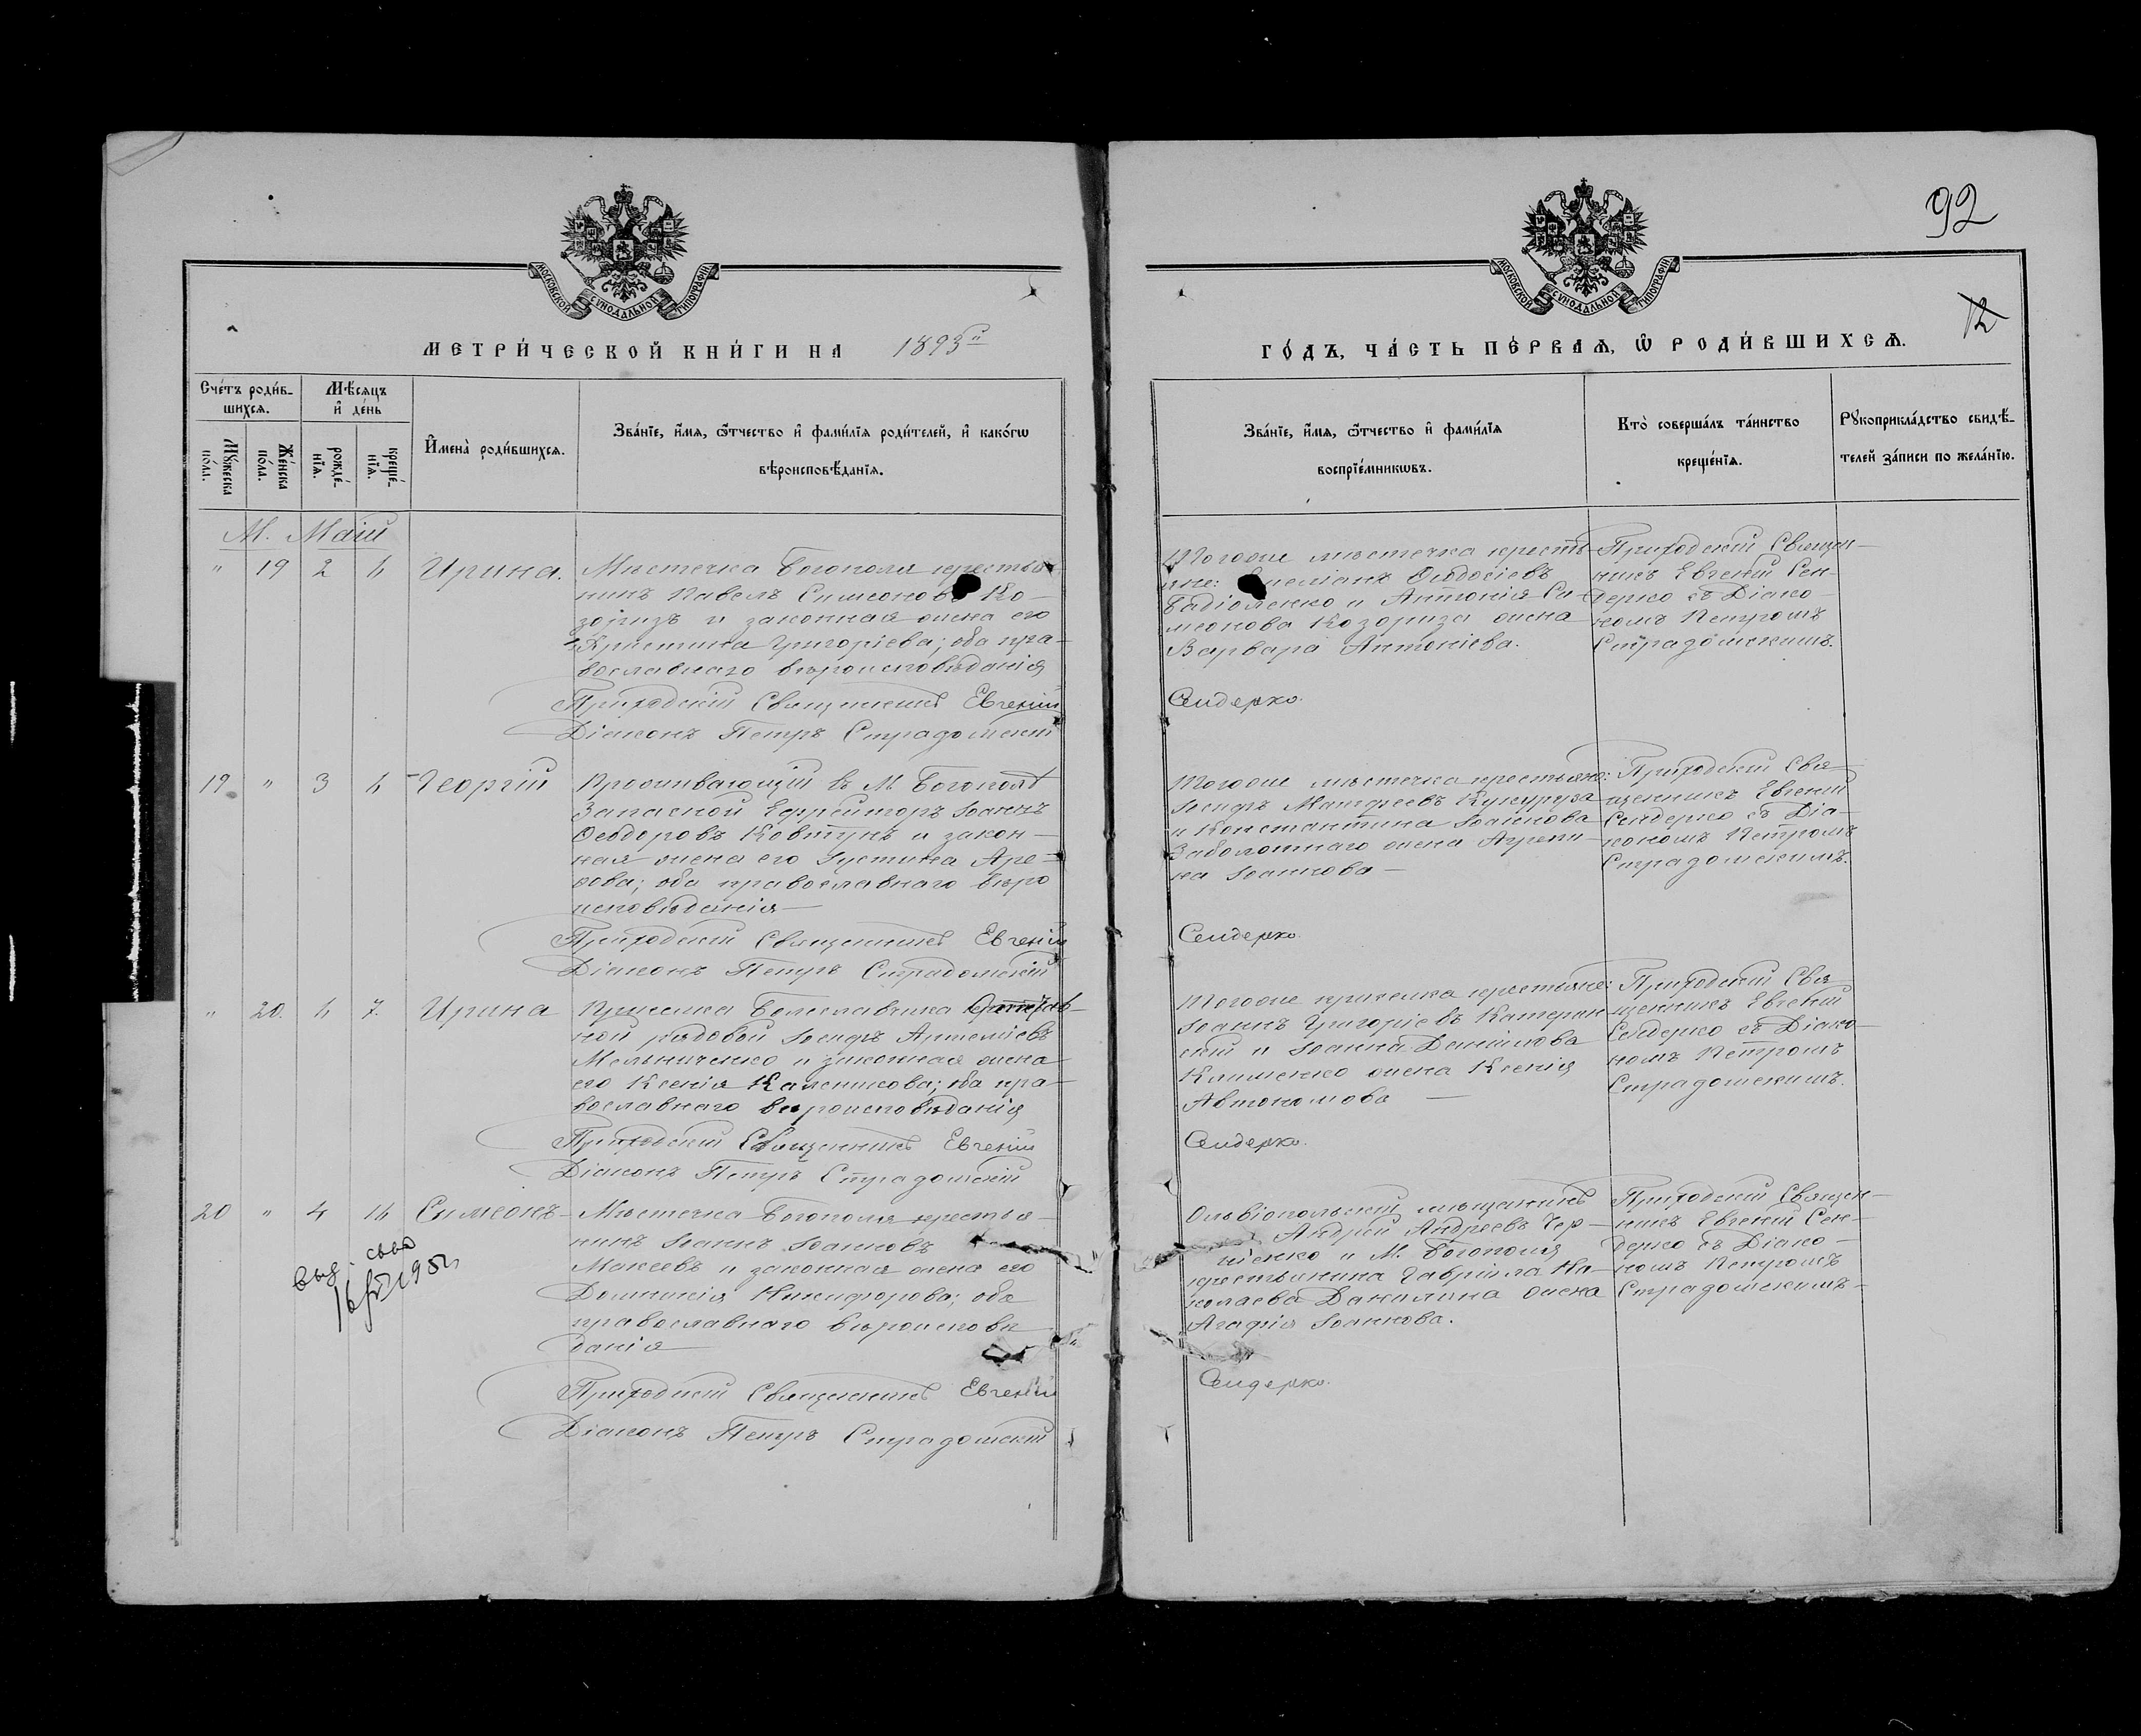 92
12
МОСКОВСКОЙ СУНОДАЛЬНОЙ ТИПОГРАФІИ
МОСКОВСКОЙ СУНОДАЛЬНОЙ ТИПОГРАФІИ
МЕТРИ́ЧЕСКОЙ КНИ́ГИ НА 1893й
ГО́ДЪ, ЧА́СТЬ ПЕ́РВАѦ, Ѡ РОДИ́ВШИХСѦ.
Сче́тъ роди́в-
шихсѧ.
Мѣ́сѧцъ
и҆ де́нь
Мꙋ́жеска по́ла.
Же́нска по́ла.
рожде́-
нїѧ.
креще́-
нїѧ.
И҆мена̀ роди́вшихсѧ.
Зва́нїе, и҆́мѧ, ѻ҆́тчество и҆ фами́лїѧ роди́телей, и҆ како́гѡ
вѣроисповѣ́данїѧ.
Зва́нїе, и҆́мѧ, ѻ҆́тчество и҆ фами́лїѧ
воспрїе́мникѡвъ.
Кто̀ соверша́лъ та́инство
креще́нїѧ.
Рꙋкоприкла́дство свидѣ́-
телей за́писи по жела́нїю.
М. Маій
" 19 2 4 Ирина.
Мѣстечка Богополя крестья
нинъ Павелъ Симеоновъ Ко-
зоризъ и законная жена его
Христина Григоріева; оба пра-
вославнаго вѣроисповѣданія
Приходскій Священникъ Евгеній
Діаконъ Петръ Страдомскій
Тогоже мѣстечка кресть-
яне: Емеліанъ Ѳеодосіевъ
и Антонія Си-
меонова Козориза жена
Варвара Антоніева.
Сендерко.
Приходскій Священ-
никъ Евгеній Сен-
дерко съ Діако-
номъ Петромъ
Страдомскимъ.
19 " 3 4 Георгій
Проживающій въ М. Богополѣ
Запасной Ефрейторъ Іоаннъ
Ѳеодоровъ Ковтунъ и закон-
ная жена его Іустина Аре-
ѳова; оба православнаго вѣро
исповѣданія
Приходскій Священникъ Евгеній
Діаконъ Петръ Страдомскій
Тогоже мѣстечка крестьяне:
Іосифъ Матфеевъ Кукуруза
и Константина Іоаннова
Заболотнаго жена Агрепи-
на Іоаннова
Сендерко.
Приходскій Свя-
щенникъ Евгеній
Сендерко съ Діа-
кономъ Петромъ
Страдомскимъ.
" 20. 4 7. Ирина
Приселка Болеславчика
ной рядовой Іосифъ Артеміевъ
Мельниченко и законная жена
его Ксенія Каленикова; оба пра-
вославнаго вѣроисповѣданія
Приходскій Священникъ Евгеній
Діаконъ Петръ Страдомскій
Тогоже приселка крестьяне:
Іоаннъ Григоріевъ
и Іоанна Даніилова
Клименко жена Ксенія
Автономова
Сендерко.
Приходскій Свя-
щенникъ Евгеній
Сендерко съ Діако-
номъ Петромъ
Страдомскимъ.
20 " 4 14 Симеонъ
Мѣстечка Богополя крестья-
нинъ Іоаннъ Іоанновъ
Макеевъ и законная жена его
Домникія Никифорова; оба
православнаго вѣроисповѣ
данія
Приходскій Священникъ Евгеній
Діаконъ Петръ Страдомскій
Ольвіопольскій мѣщанинъ
Андрей Андреевъ Чер-
ненко и М. Богополя
крестьянина Гавріила Ни-
колаева Данилина жена
Агафія Іоаннова.
Сендерко.
Приходскій Священ-
никъ Евгеній Сен-
дерко съ Діако-
номъ Петромъ
Страдомскимъ